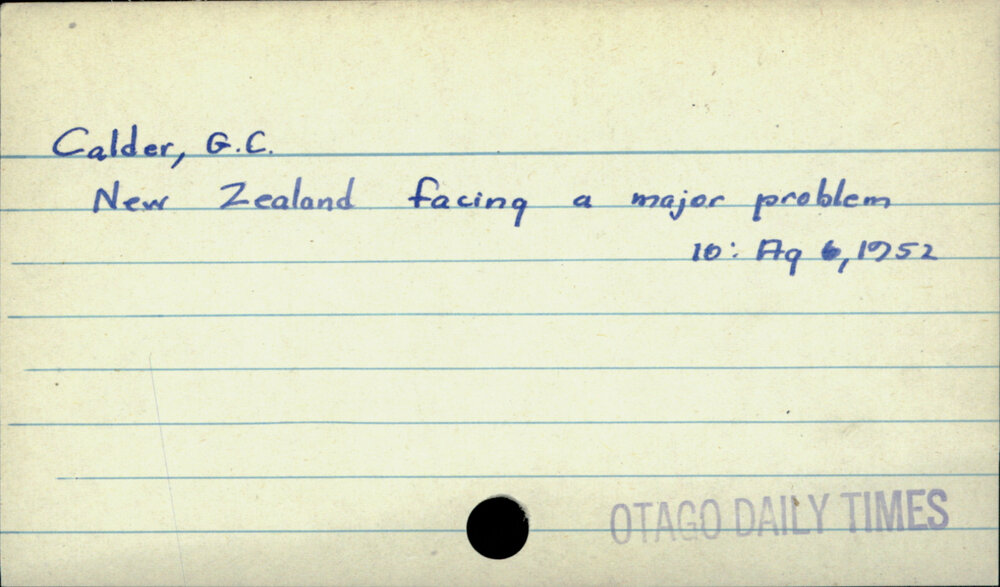 Calder, G.C.
New Zealand facing a major problem
10: Ag 6, 1952
OTAGO DAILY TIMES